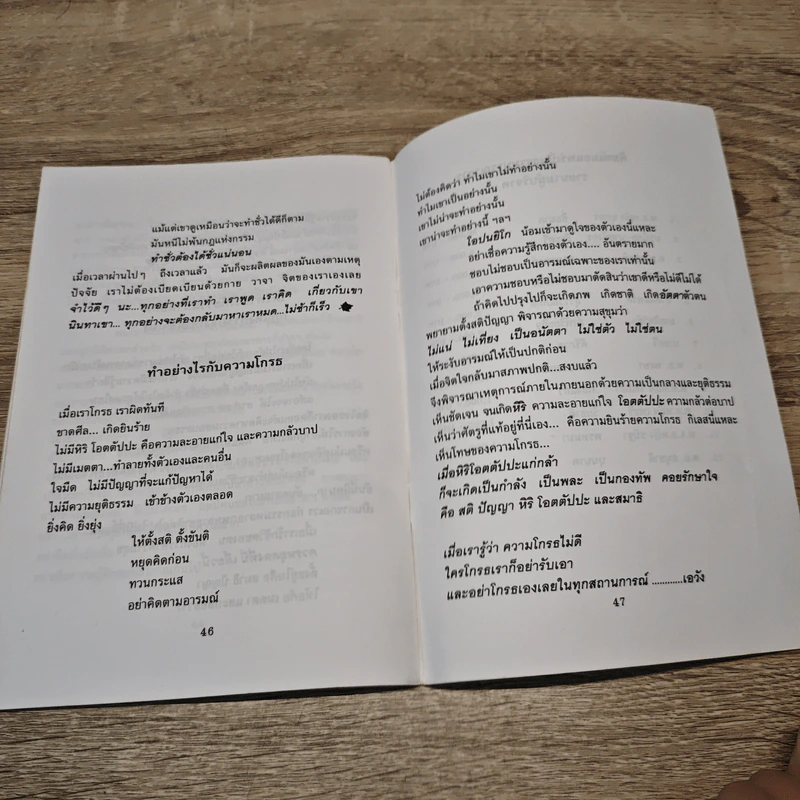 แม้แต่เขาดูเหมือนว่าจะทำชั่วได้ดีก็ตาม
มันหนีไม่พ้นกฎแห่งกรรม
ทำชั่วต้องได้ชั่วแน่นอน
เมื่อเวลาผ่านไปๆ ถึงเวลาแล้ว มันก็จะผลิตผลของมันเองตามเหตุ
ปัจจัย เราไม่ต้องเบียดเบียนด้วยกาย วาจา จิตของเราเองเลย
จำไว้ดีๆ นะ...ทุกอย่างที่เราทำ เราพูด เราคิด เกี่ยวกับเขา
นินทาเขา... ทุกอย่างจะต้องกลับมาหาเราหมด...ไม่ช้าก็เร็ว
ทำอย่างไรกับความโกรธ
เมื่อเราโกรธ เราผิดทันที
ขาดศีล... เกิดยินร้าย
ไม่มีหิริ โอตตัปปะ คือความละอายแก่ใจ และความกลัวบาป
ไม่มีเมตตา...ทำลายทั้งตัวเองและคนอื่น
ใจมืด ไม่มีปัญญาที่จะแก้ปัญหาได้
ไม่มีความยุติธรรม เข้าข้างตัวเองตลอด
ยิ่งคิด ยิ่งยุ่ง
ให้ตั้งสติ ตั้งขันติ
หยุดคิดก่อน
ทวนกระแส
อย่าคิดตามอารมณ์
46
ไม่ต้องคิดว่า ทำไมเขาไม่ทำอย่างนั้น
ทำไมเขาเป็นอย่างนั้น
เขาไม่น่าจะทำอย่างนั้น
เขาน่าจะทำอย่างนี้ ฯลฯ
โอปนยิโก น้อมเข้ามาดูใจของตัวเองนี่แหละ
อย่าเชื่อความรู้สึกของตัวเอง.... อันตรายมาก
ชอบไม่ชอบเป็นอารมณ์เฉพาะของเราเท่านั้น
เอาความชอบหรือไม่ชอบมาตัดสินว่าเขาดีหรือไม่ดีไม่ได้
ถ้าคิดไปปรุงไปก็จะเกิดภพ เกิดชาติ เกิดอัตตาตัวตน
พยายามตั้งสติปัญญา พิจารณาด้วยความสุขุมว่า
ไม่แน่ ไม่เที่ยง เป็นอนัตตา ไม่ใช่ตัว ไม่ใช่ตน
ให้ระงับอารมณ์ให้เป็นปกติก่อน
เมื่อจิตใจกลับมาสภาพปกติ...สงบแล้ว
จึงพิจารณาเหตุการณ์ภายในภายนอกด้วยความเป็นกลางและยุติธรรม
เห็นชัดเจน จนเกิดหิริ ความละอายแก่ใจ โอตตัปปะ ความกลัวต่อบาป
เห็นว่าศัตรูที่แท้อยู่ที่นี่เอง... คือความยินร้ายความโกรธ กิเลสนี่แหละ
เห็นโทษของความโกรธ...
เมื่อหิริโอตตัปปะแก่กล้า
ก็จะเกิดเป็นกำลัง เป็นพละ เป็นกองทัพ คอยรักษาใจ
คือ สติ ปัญญา หิริ โอตตัปปะ และสมาธิ
เมื่อเรารู้ว่า ความโกรธไม่ดี
ใครโกรธเราก็อย่ารับเอา
และอย่าโกรธเองเลยในทุกสถานการณ์ ............เอวัง
47